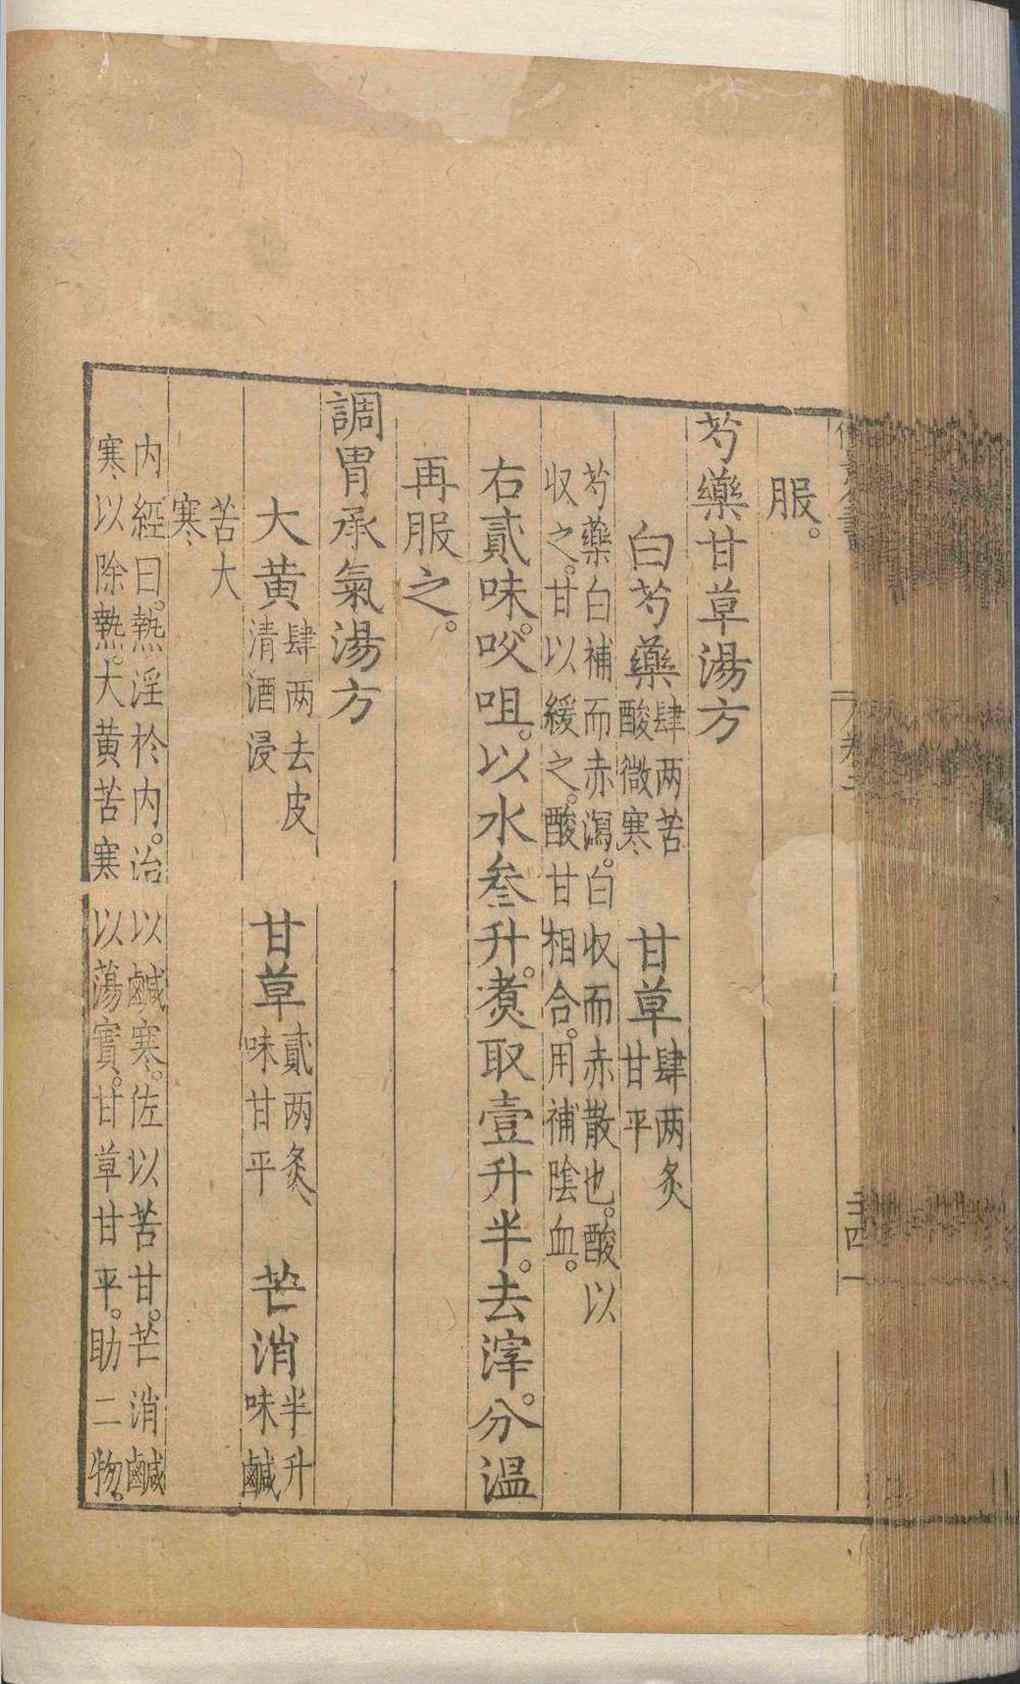 服。
芍藥甘草湯方
白芍藥肆两苦酸微寒 甘草肆两炙甘平
芍藥白補而赤瀉。白收而赤散也。酸以
収之。甘以緩之。酸甘相合。用補陰血。
右貳味。㕮咀。以水叁升。煮取壹升半。去滓。分温
再服之。
調胃承氣湯方
大黄肆两去皮清酒浸 甘草貳两炙味甘平 芒消半升味鹹
苦大寒
内經曰。熱淫於内。治以鹹寒。佐以苦甘。芒消鹹
寒以除熱。大黄苦寒以蕩實。甘草甘平。助二物。